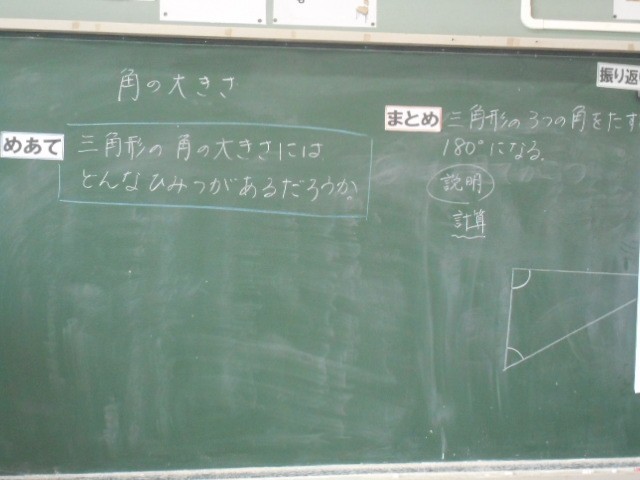 角の大きさ
めあて
三角形の角の大きさには
どんなひみつがあるだろうか。
まとめ
三角形の3つの角をたす
180°になる。
説明
計算
振り返